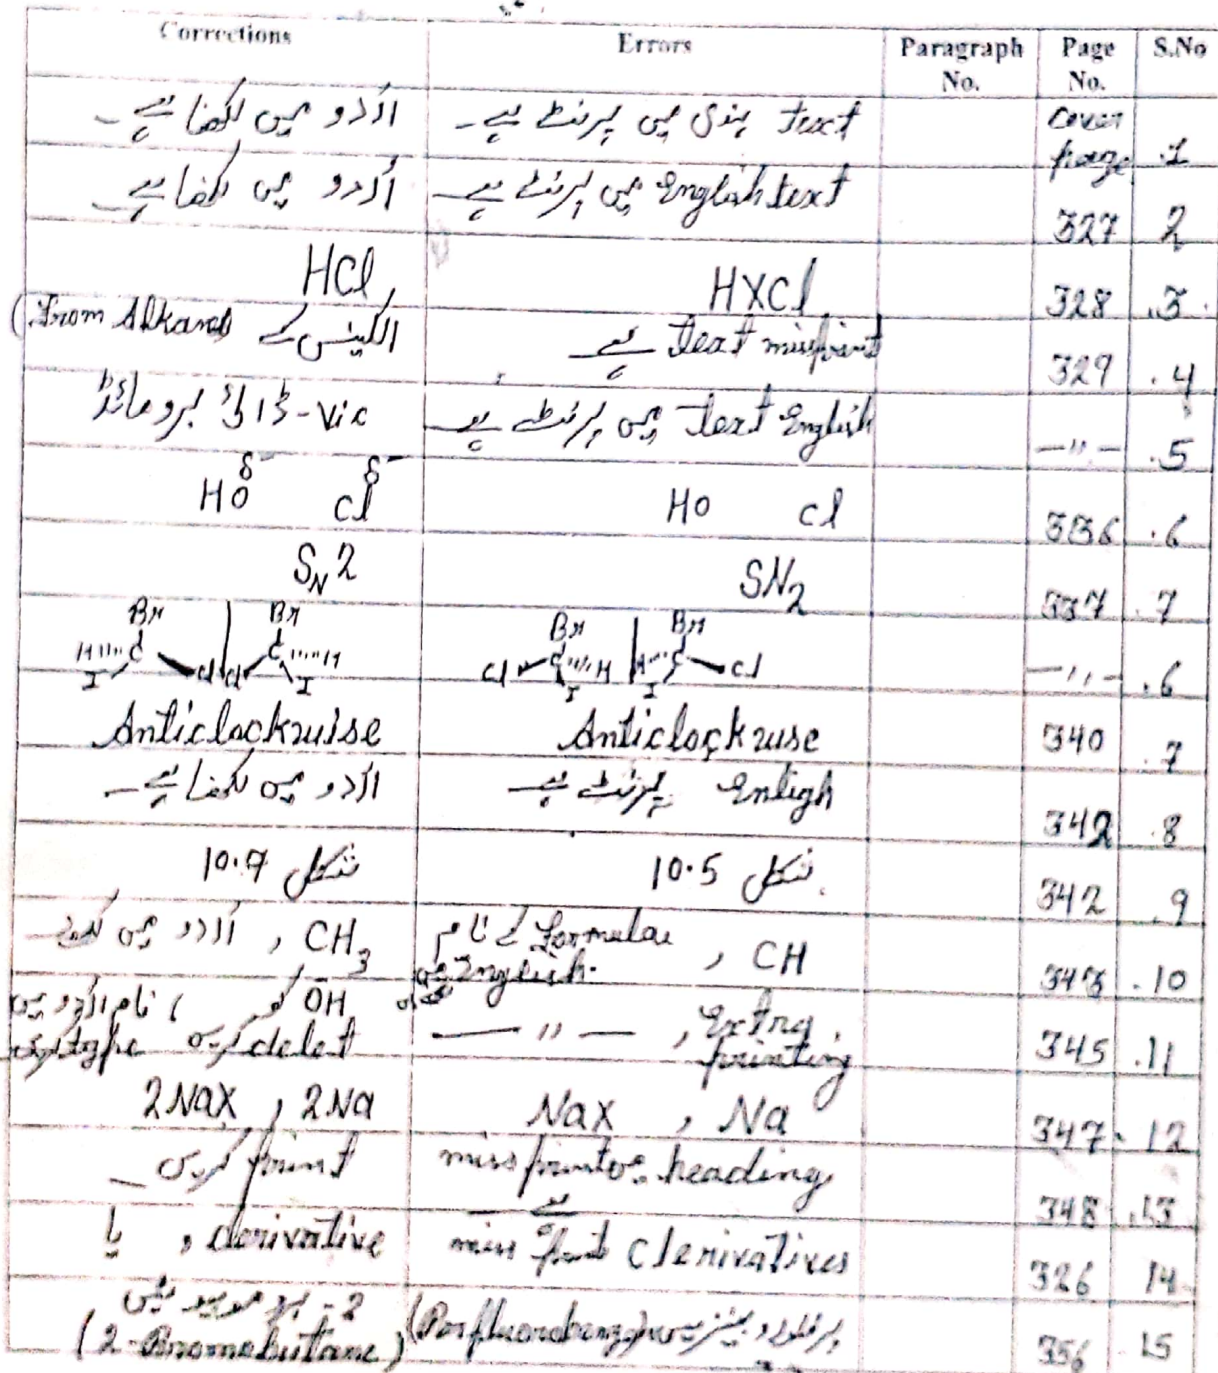 Corrections Errors Paragraph No. Page No. S.No
اُردو میں لکھنا ہے۔ text ہندی میں پرنٹ ہے۔ cover page .1
اُردو میں لکھنا ہے۔ English text میں پرنٹ ہے۔ 327 2
HCl HXCl 328 .3
(From Alkanes الکینس کے text missprint ہے 329 .4
Vic-ڈائی برومائڈ text English میں پرنٹ ہے —"— .5
HO δ- Cl δ- HO Cl 336 .6
SN2 SN2 337 .7
Br Br H C Cl I Cl C H I Br Br Cl C H I H C Cl I —"— .6
Anticlockwise Anticlockwse 340 .7
اُردو میں لکھنا ہے۔ Entigh پرنٹ ہے۔ 342 .8
شکل 10.7 شکل 10.5 342 .9
CH3 , اُردو میں CH , Formulae کے نام English میں 343 .10
OH کو delet کریں ، نام اُردو میں type کریں Extra printing , —"— 345 .11
2NaX , 2Na NaX , Na 347 .12
print کریں۔ heading missprint ہے 348 .13
derivative , یا Clerivatives miss print 326 14
2-برومو بیوٹین (2-Bromobutane) پرفلورو بینزین (Perfluorobenzene) 356 15